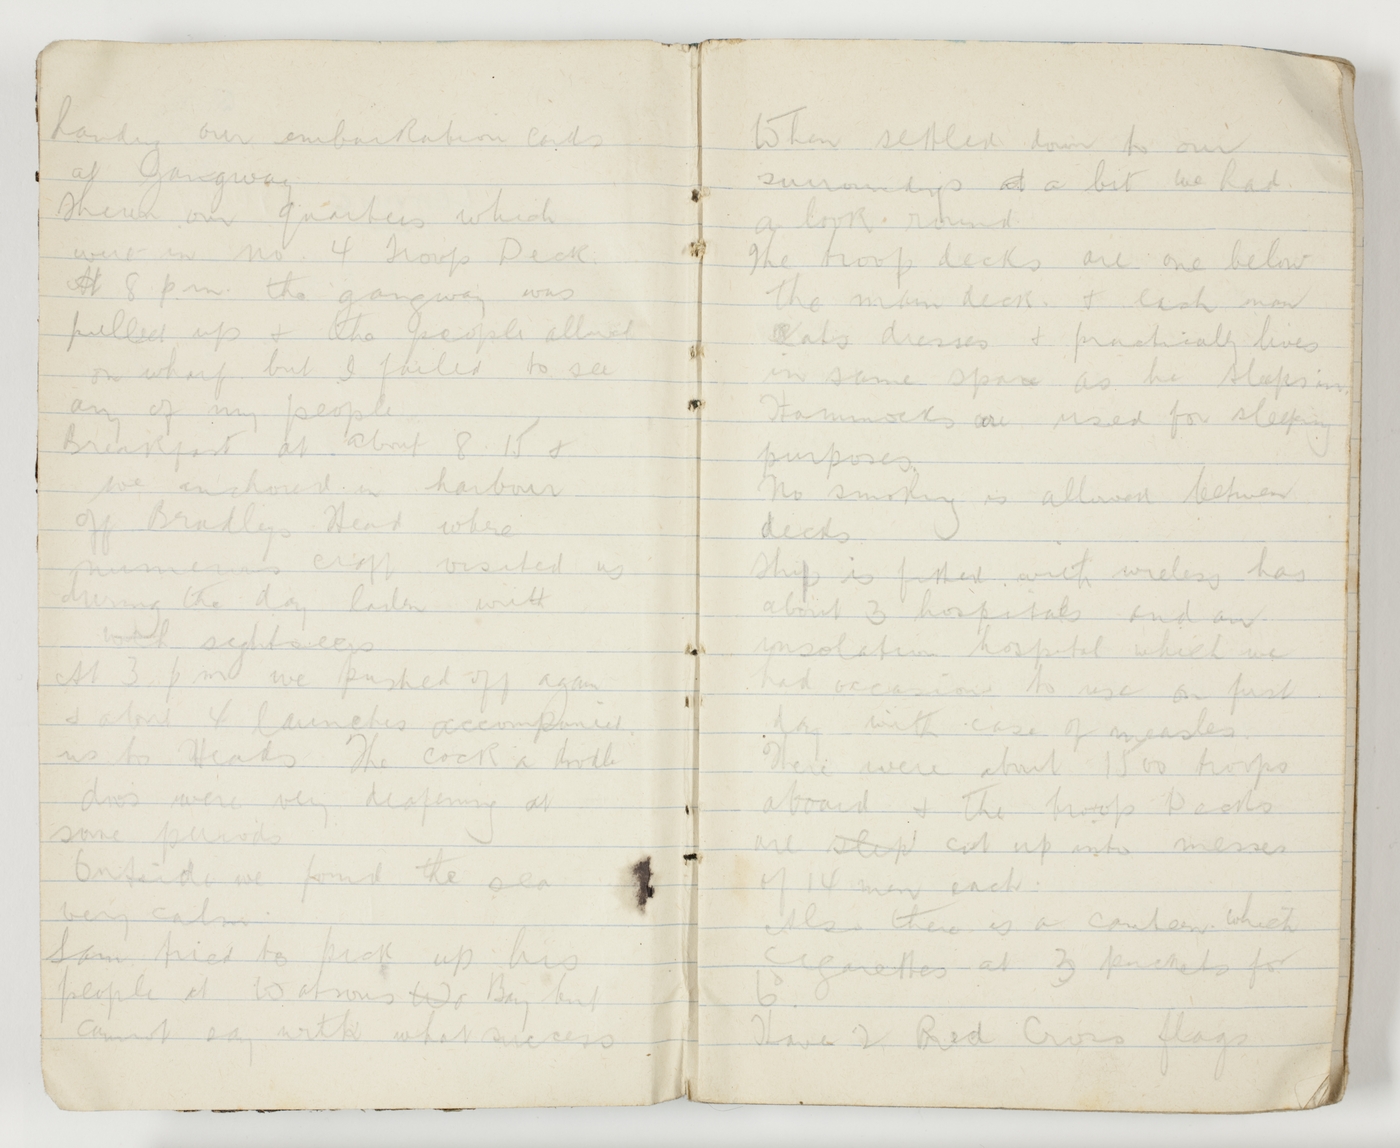 handing our embarkation cards
at Gangway
Shewn our quarters which
were in No. 4 Troop Deck.
At 8 p.m. the gangway was
pulled up & the people allowed
on wharf but I failed to see
any of my people
Breakfast at about 8.15 &
we anchored in harbour
off Bradleys Head where
numerous craft visited us
during the day laden with
with sightseers
At 3 p m we pushed off again
& about 4 launches accompanied
us to Heads. The cock a doodle
doos were very deafening at
some periods
Outside we found the sea
very calm.
Sam tried to pick up his
people at Watsons Bay but
cannot say with what success
When settled down to our
surroundgs a bit we had
a look round
The troop decks are one below
the main deck. & each man
eats dresses & practically lives
in same space as he sleeps in.
Hammocks are used for sleeping
purposes.
No smoking is allowed between
decks.
Ship is fitted with wireless has
about 3 hospitals and an
insolation hospital which we
had occasion to use on first
day with case of measles.
There were about 1500 troops
aboard & the troop Decks
are slep' cut up into messes
of 14 men each.
Also there is a canteen which
cigarettes at 3 packets for
6.
Have 2 Red Cross flags